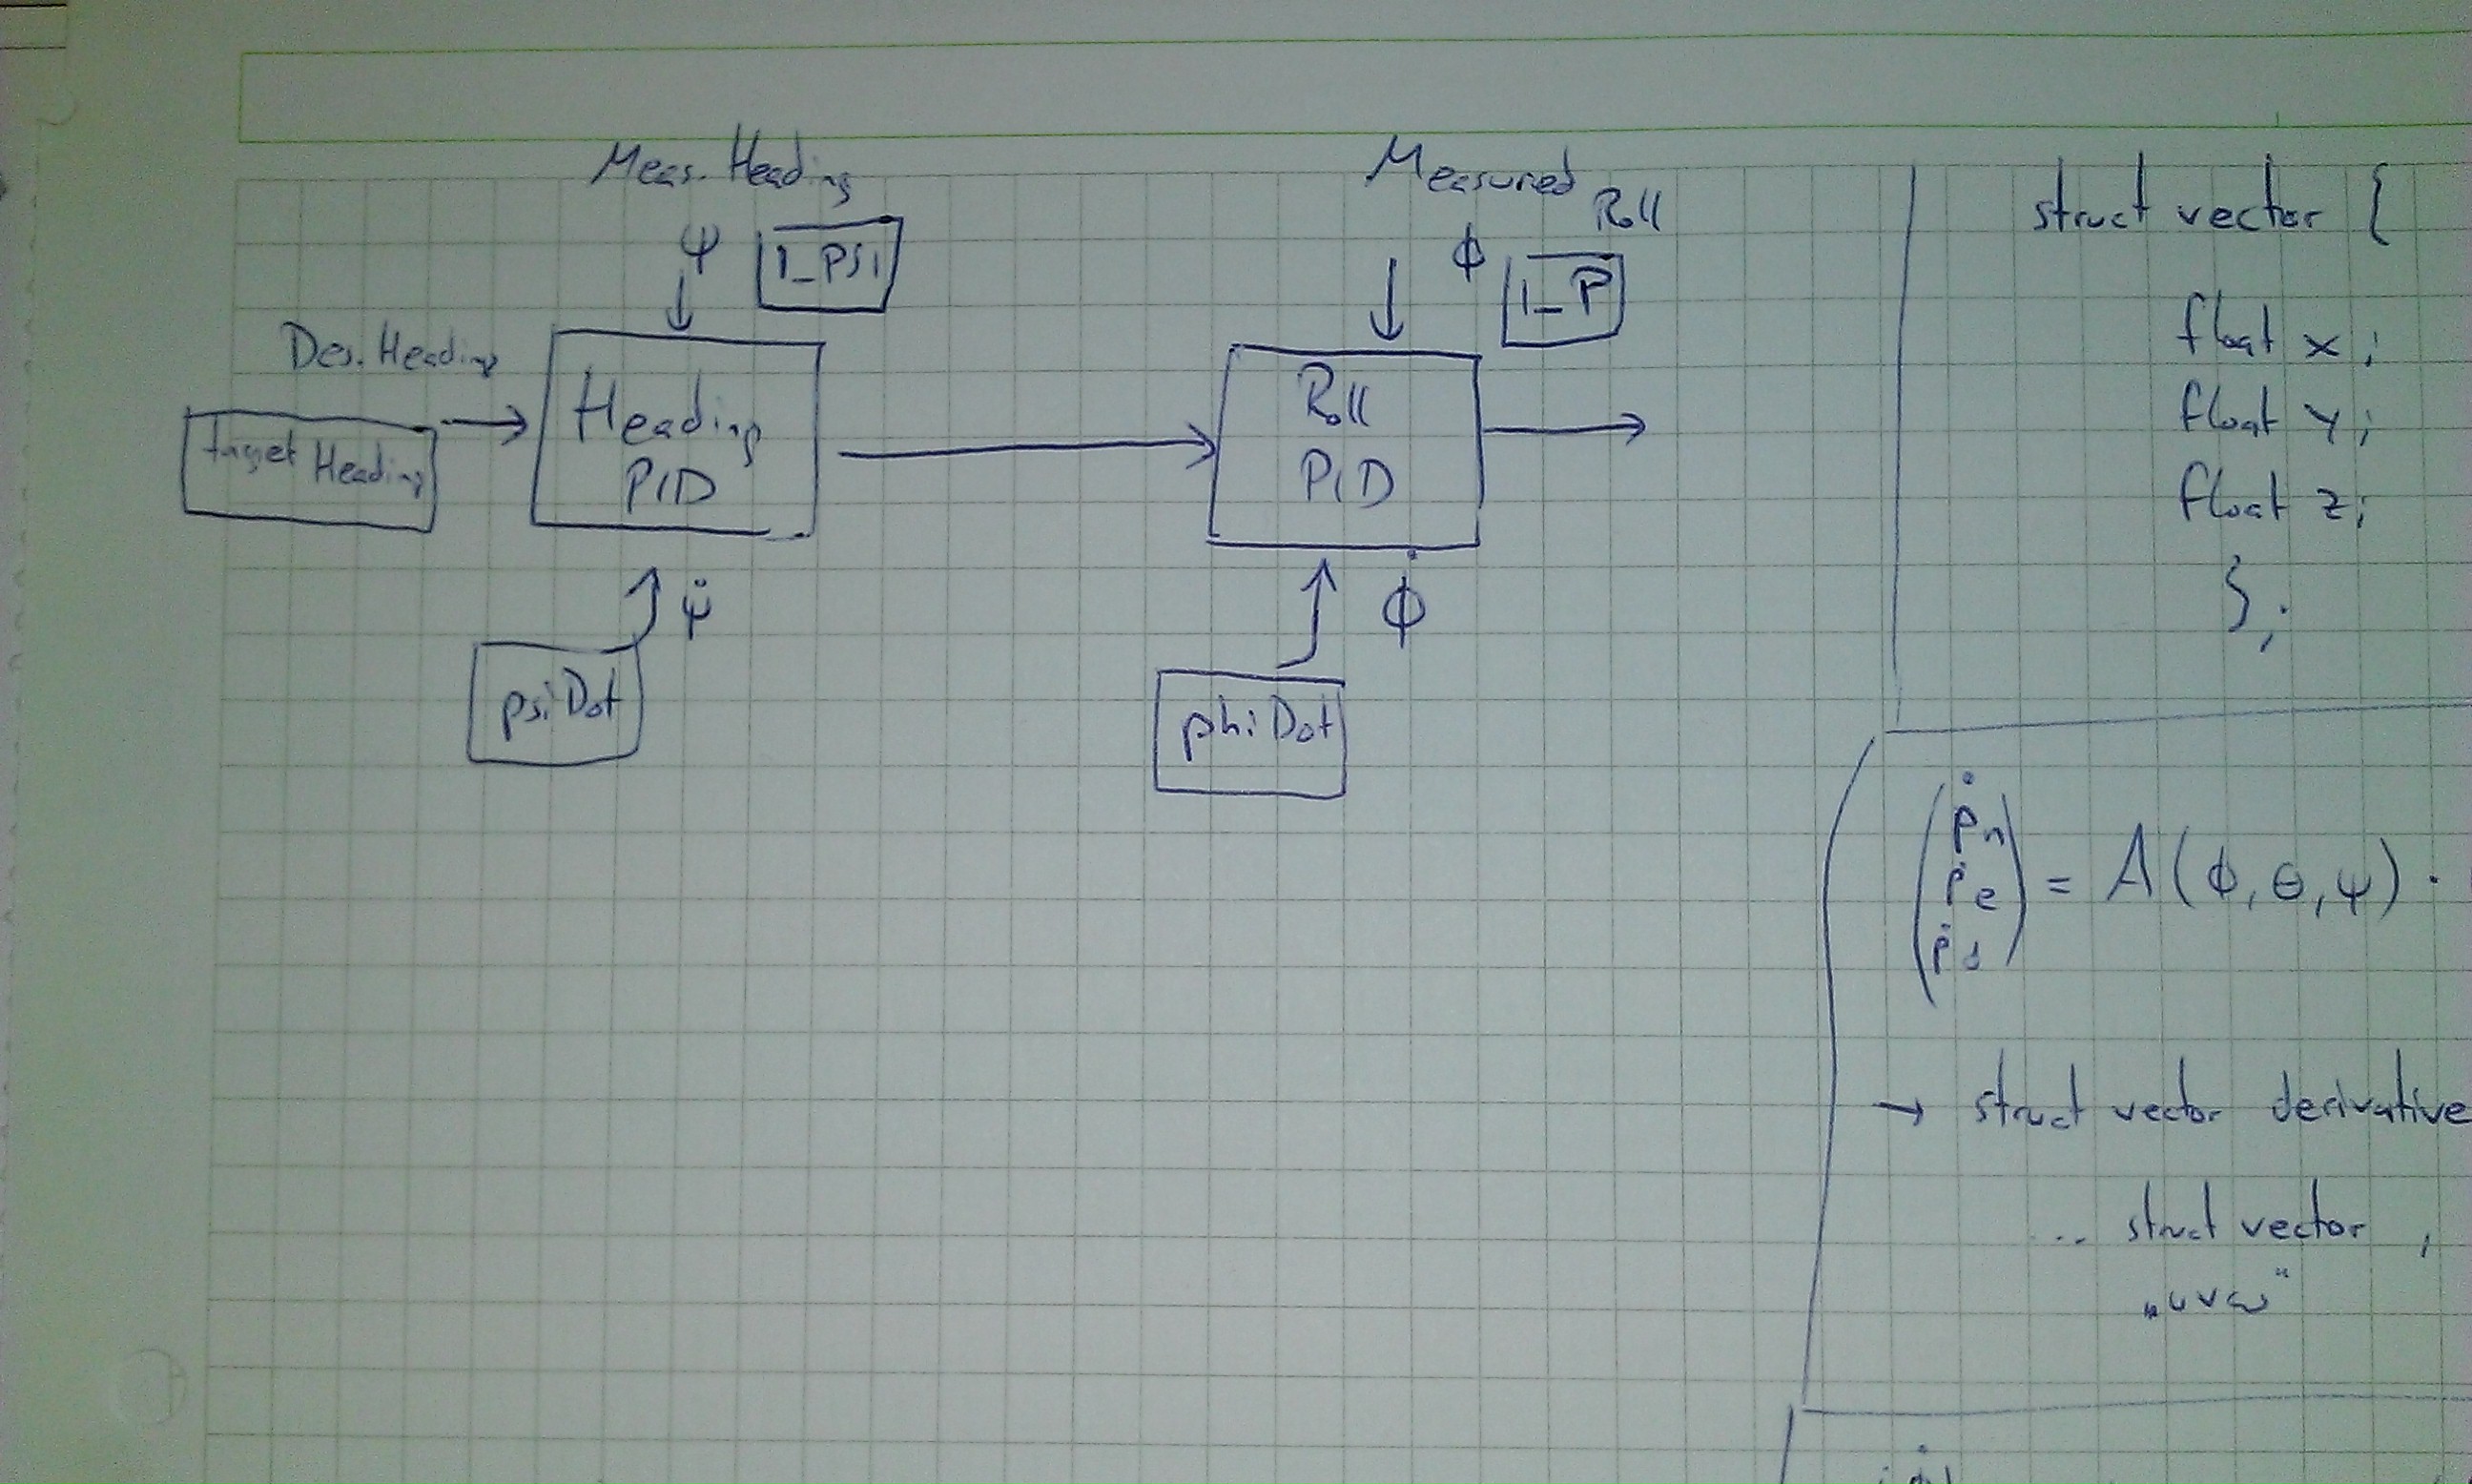 Meas. Heading
ψ
1_PSI
Des. Heading
target Heading
Heading
PID
ψ̇
psiDot
Measured
Roll
ϕ
1_P
Roll
PID
ϕ̇
phiDot
struct vector {
float x;
float y;
float z;
};
(ṗn ṗe ṗd) = A(ϕ, θ, ψ) ·
→ struct vector derivative
.. struct vector ,
„uvw"